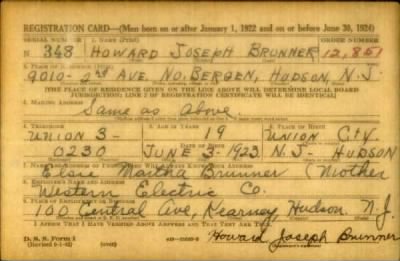 REGISTRATION CARD—(Men born on or after January 1, 1922 and on or before June 30, 1924)
SERIAL NUMBER 1. NAME (Print) ORDER NUMBER
N 348 HOWARD JOSEPH BRUNNER 12,851
2. PLACE OF RESIDENCE (Print)
9010- 2nd AVE. NO. BERGEN, HUDSON, N.J.
[THE PLACE OF RESIDENCE GIVEN ON THE LINE ABOVE WILL DETERMINE LOCAL BOARD
JURISDICTION; LINE 2 OF REGISTRATION CERTIFICATE WILL BE IDENTICAL]
3. MAILING ADDRESS
Same as above.
4. TELEPHONE 5. AGE IN YEARS 6. PLACE OF BIRTH
UNION 3- 19 UNION CITY
DATE OF BIRTH
0230 JUNE 3- 1923 N.J- HUDSON
7. NAME AND ADDRESS OF PERSON WHO WILL ALWAYS KNOW YOUR ADDRESS
Elsie Martha Brunner (Mother
8. EMPLOYER'S NAME AND ADDRESS
Western Electric Co.
9. PLACE OF EMPLOYMENT OR BUSINESS
100 Central Ave, Kearney, Hudson N.J.
I AFFIRM THAT I HAVE VERIFIED ABOVE ANSWERS AND THAT THEY ARE TRUE.
D. S. S. Form 1
(Revised 6-1-42) (over)
Howard Joseph Brunner
(Registrant's signature)